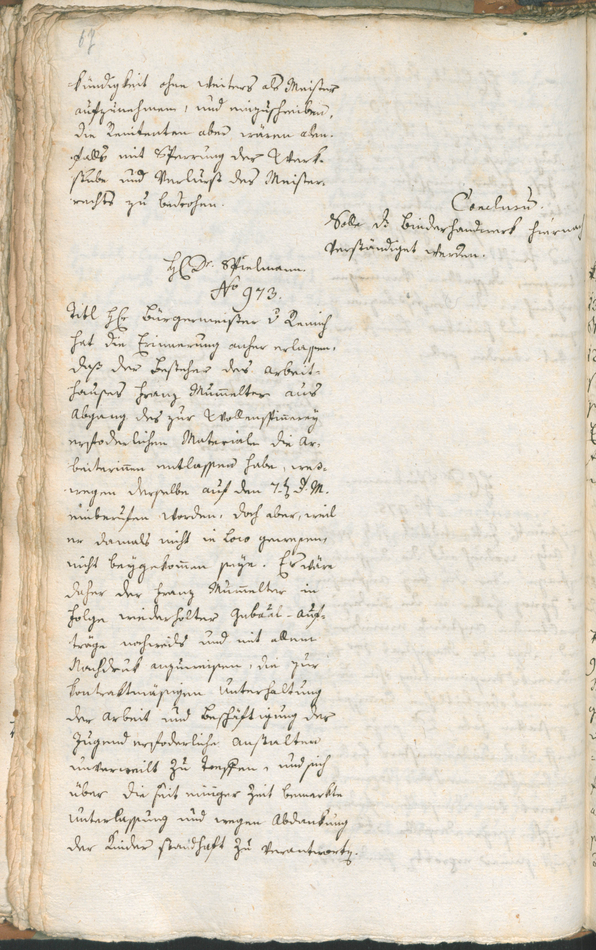 67
kündigkeit ohne weiters als Meister
aufzunehmen, und einzuschreiben,
die Renitenten aber wären allen-
falls mit Sperrung der Werk-
stube und Verlurst des Meister-
rechts zu bedrohen.
Conclusū.
Solle dz Binderhandwerk hiernach
verständiget werden.
H. Dr. Spielmann.
No 973.
Titl H. Bürgermeister v. Remich
hat die Erinnerung anher erlassen,
daß der Besteher des Arbeit-
hauses Franz Mumelter aus
Abgang des zur Wollenspinnerey
erfoderlichen Materiale die Ar-
beiterinen entlassen habe, wes-
wegen derselbe auf den 7. d. M.
einberufen worden, doch aber, weil
er damals nicht in Loco gewesen,
nicht beygekomen seye. Es wäre
daher der Franz Mumelter in
Folge wiederholter Gubāl-Auf-
träge nochmals und mit allem
Nachdruk anzuweisen, die zur
kontraktmäsigen Unterhaltung
der Arbeit und Beschäftigung der
Jugend erfoderliche Anstalten
unverweilt zu treffen, und sich
über die seit einiger Zeit bemerkte
Unterlassung und wegen Abdankung
der Kinder standhaft zu verantworten.